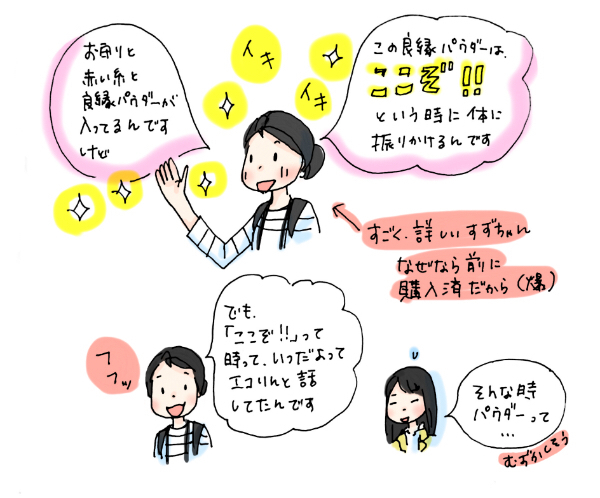 お守りと
赤い糸と
良縁パウダーが
入ってるんです
けど
イキ
イキ
この良縁パウダーは、
ここぞ!!
という時に体に
振りかけるんです
すごく詳しいすずちゃん
なぜなら前に
購入済だから(爆)
フフッ
でも、
「ここぞ!!」って
時って、いつだよって
エコりんと話
してたんです
そんな時
パウダーって
…
むずかしそう